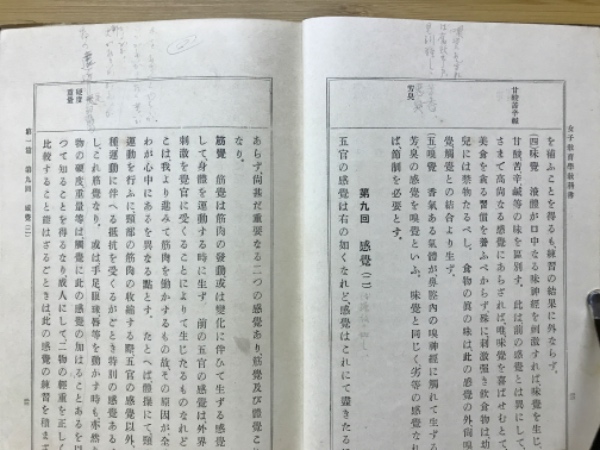 女子教育學教科書
甘酸苦辛鹹
芳臭
を補ふことを得るも、練習の結果に外ならず。
(四)味覺　液體が口中なる味神經を刺激すれば、味覺を生じ、
甘酸苦辛鹹等の味を區別す。此は前の感覺とは異にして、
さまで高尙なる感覺にあらざれば、嗅味覺を喜ばせむとて、
美食を取る習慣を養ふべからず。殊に刺激强き飮食物は、幼
兒には禁物たるべし。食物の眞の味は、此の感覺の外、嗅
覺觸覺との結合より生ず。
(五)嗅覺　香氣ある氣體が鼻腔內の嗅神經に觸れて生ずる
芳臭の感覺を嗅覺といふ。味覺と同じく劣等の感覺なれ
ば、節制を必要とす。
第九回　感覺(二)
五官の感覺は右の如くなれど、感覺はこれにて盡きたるに
硬度
重覺
あらず、尙甚だ重要なる二つの感覺あり、筋覺及び體覺こ
なり。
筋覺　筋覺は筋肉の發動或は變化に伴ひて生ずる感覺
して、身體を運動する時に生ず。前の五官の感覺は外界
刺激を覺官に受くることによりて生じたるものなれど
こは、我より進みて筋肉を動かするもの故、その原因が全
わが心中にあるを異なる點とす。たとへば體操にて頸
運動を行ふに、頸部の筋肉の收縮する際、五官の感覺以外
種運動に伴へる抵抗を受くるがごとき特別の感覺ある
し、これ筋覺なり。或は手足、眼球、唇等を動かす時も亦然り
物の硬度重量等は觸覺に此の感覺の加はることあるを以
つて知ることを得るなり。成人にして二物の輕重を正しく
比較すること能はざるごときは、此の感覺の練習を積ま
第一篇　第九回　感覺(二)